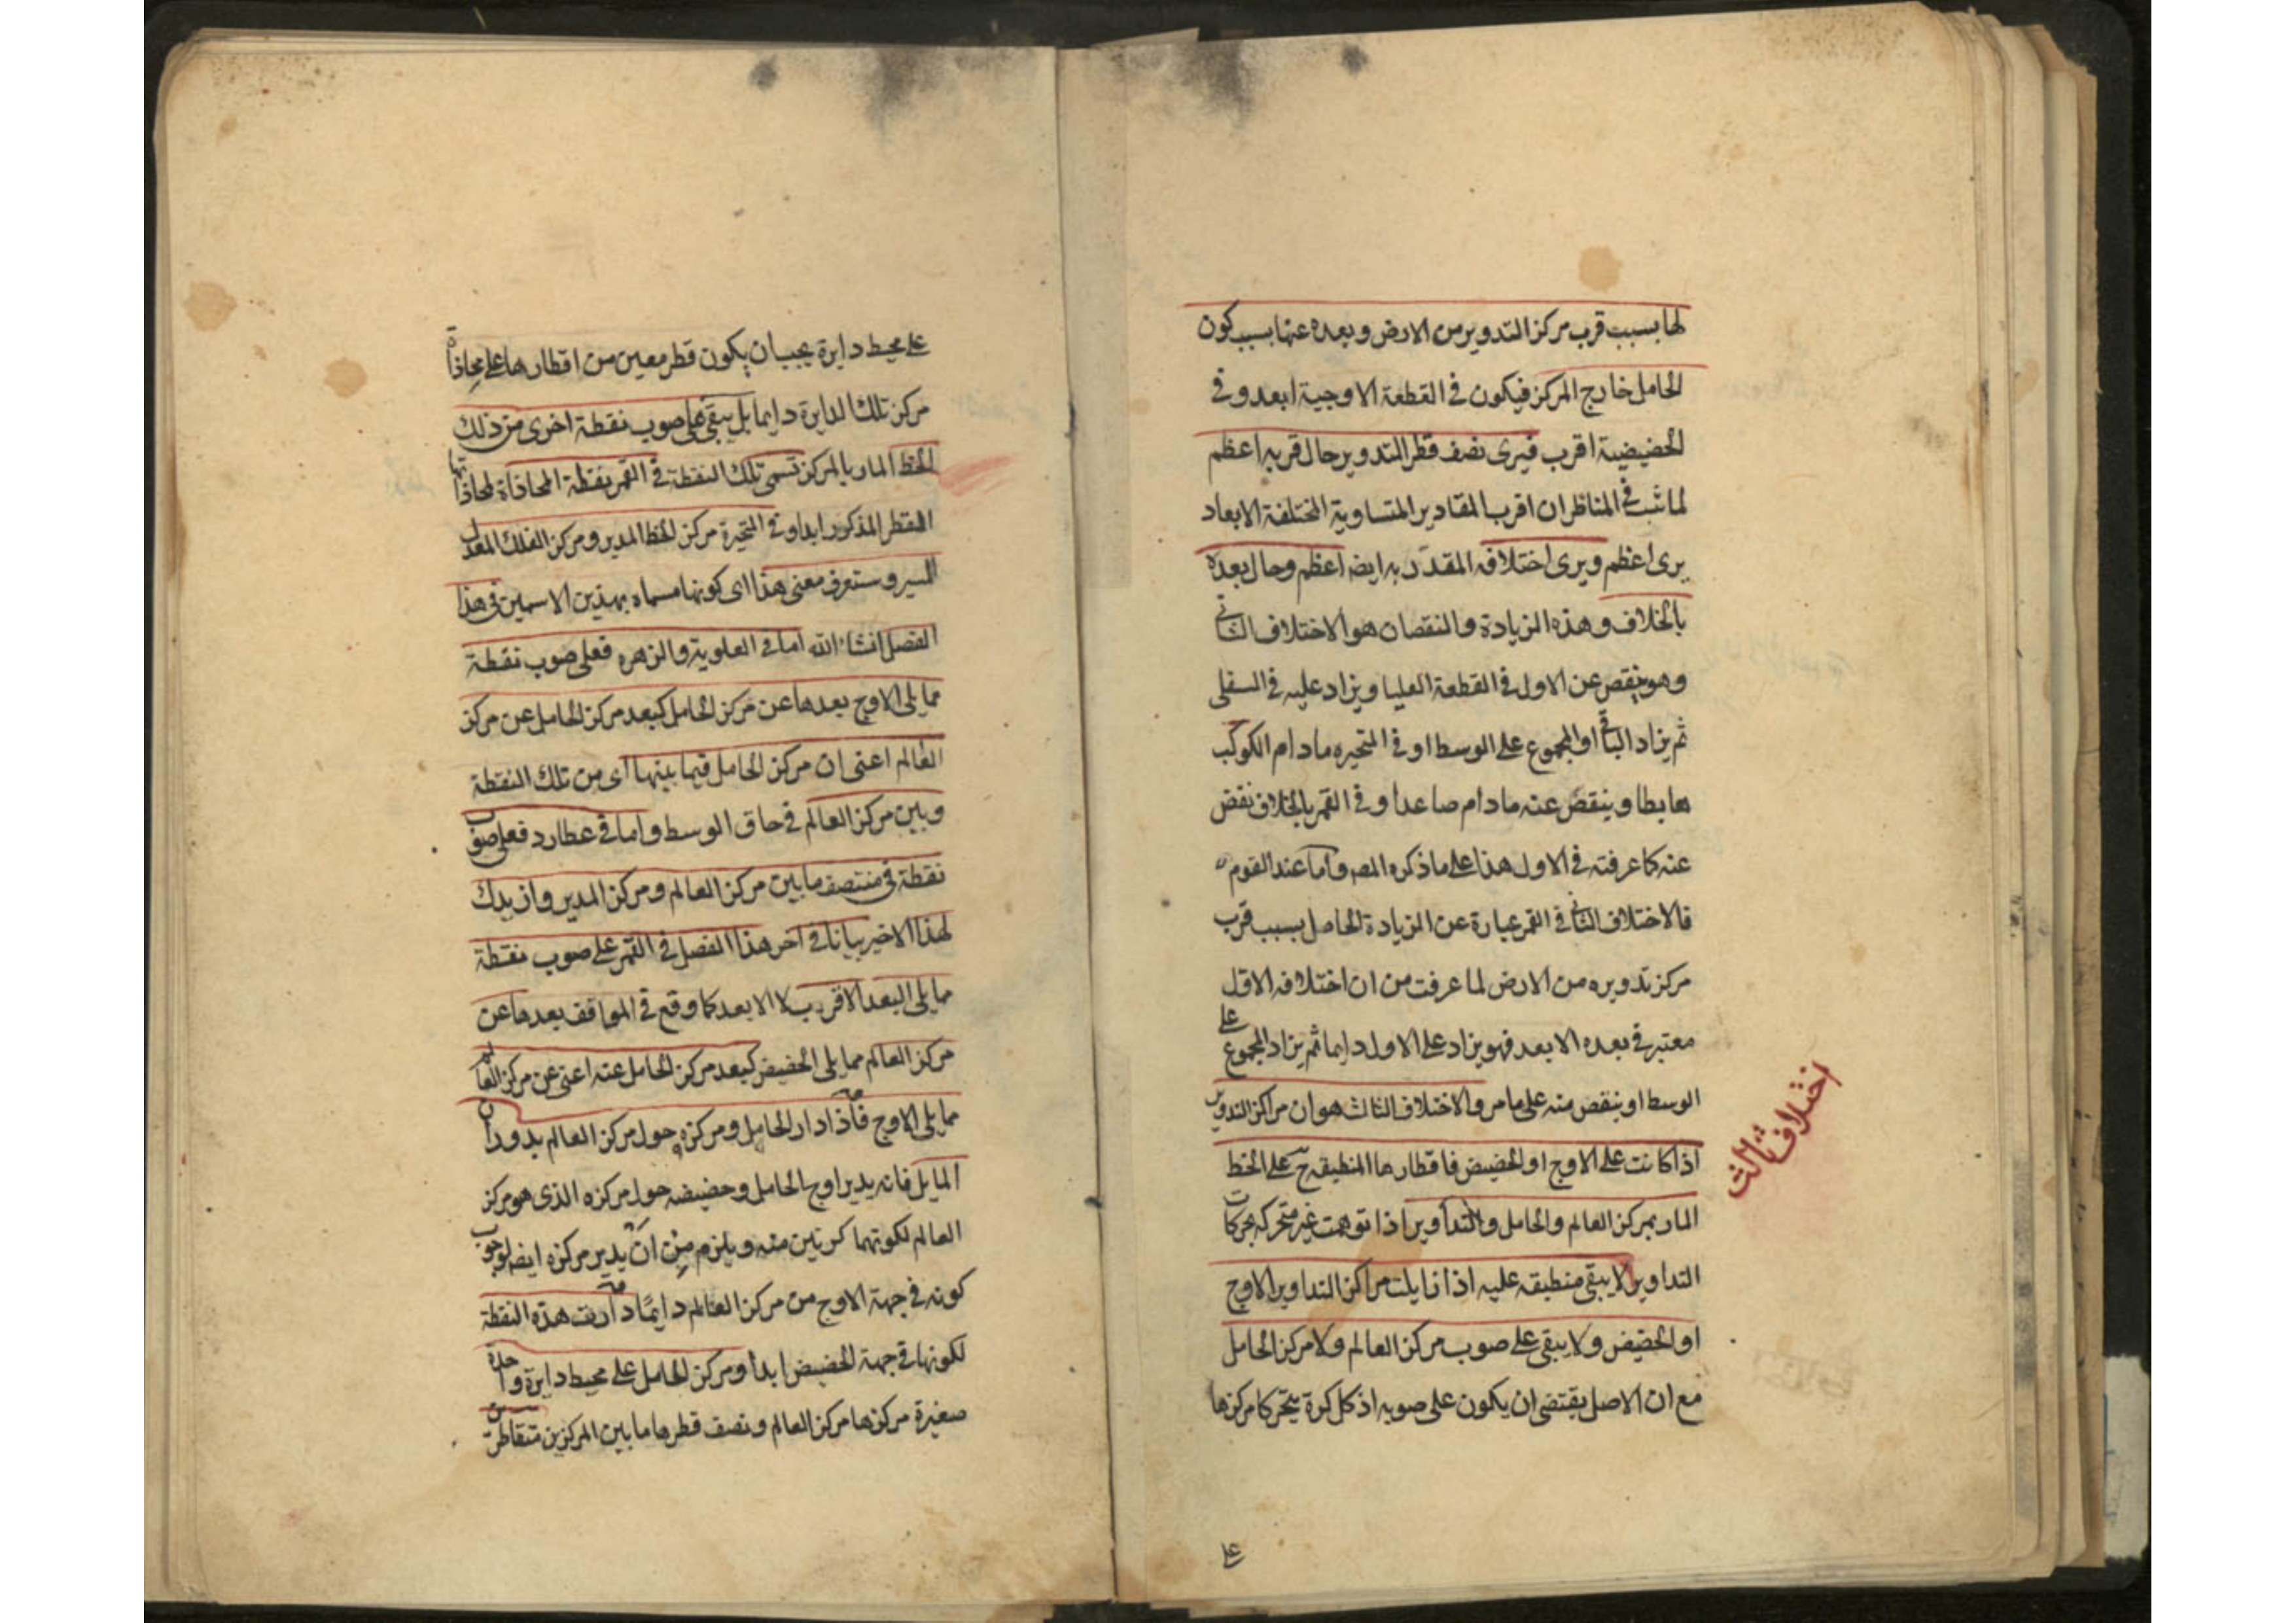 لها بسبب قرب مركز التدوير من الارض وبعده عنها بسبب كون
الحامل خارج المركز فيكون فى القطعة الاوجية ابعد وفى
الحضيضية اقرب فيرى نصف قطر التدوير حال قربه اعظم
لما ثبت فى المناظر ان اقرب المقادير المتساوية المختلفة الابعاد
يرى اعظم ويرى اختلافه المقدر به ايضا اعظم وحال بعده
بالخلاف وهذه الزيادة والنقصان هو الاختلاف الثانى
وهو ينقص عن الاول فى القطعة العليا ويزاد عليه فى السفلى
ثم يزاد الباقى او المجموع على الوسط او فى المتحيره مادام الكوكب
هابطا وينقص عنه مادام صاعدا وفى القمر بالخلاف نقص
عنه كما عرفته فى الاول هذا على ما ذكره المص واما عند القوم
فالاختلاف الثانى فى القمر عبارة عن الزيادة الحاصل بسبب قرب
مركز تدويره من الارض لما عرفت من ان اختلافه الاول
معتبر فى بعده الابعد فهو يزاد على الاول دايما ثم يزاد المجموع على
الوسط او ينقص منه على ما مر والاختلاف الثالث هو ان مراكز التدوير
اذا كانت على الاوج او الحضيض فاقطارها المنطبقه ح على الخط
المار بمركز العالم والحامل والتداوير اذا توهمت غير متحركه بحركات
التداوير لا يبقى منطبقه عليه اذا زايلت مراكز التداوير الاوج
او الحضيض ولا يبقى على صوب مركز العالم ولا مركز الحامل
مع ان الاصل يقتضى ان يكون على صوبه اذ كل كرة يتحرك مركزها
اختلاف ثالث
على
على محيط دايرة يجب ان يكون قطر معين من اقطارها على محاذاة
مركز تلك الدايرة دايما بل يبقى على صوب نقطة اخرى من ذلك
الخط المار بالمركز تسمى تلك النقطة فى القمر نقطة المحاذاة لمحاذاتها
القطر المذكور ابدا وفى المتحيرة مركز الخط المدير ومركز الفلك المعدل
المسير وستعرف معنى هذا اى كونها مسماه بهذين الاسمين فى هذا
الفصل انشاء الله اما فى العلوية والزهره فعلى صوب نقطة
مما يلى الاوج بعدها عن مركز الحامل كبعد مركز الحامل عن مركز
العالم اعنى ان مركز الحامل فيما بينها اى من تلك النقطة
وبين مركز العالم فى حاق الوسط واما فى عطارد فعلى صوب
نقطة فى منتصف ما بين مركز العالم ومركز المدير وازيدك
لهذا الاخير بيانا فى اخر هذا الفصل فى القمر على صوب نقطة
مما يلى البعد الاقرب لا الابعد كما وقع فى المواقف بعدها عن
مركز العالم مما يلى الحضيض كبعد مركز الحامل عنه اعنى عن مركز العالم
مما يلى الاوج فاذا دار الحامل ومركزه حول مركز العالم بدوران
المايل فانه يدير اوج الحامل وحضيضه حول مركزه الذى هو مركز
العالم لكونهما كرتين منه ويلزم من ان يدير مركزه ايضا لوجوب
كونه فى جهة الاوج من مركز العالم دايما دارت هذه النقطة
لكونها فى جهة الحضيض ابدا ومركز الحامل على محيط دايرة واحدة
صغيرة مركزها مركز العالم ونصف قطرها ما بين المركزين متقاطرين